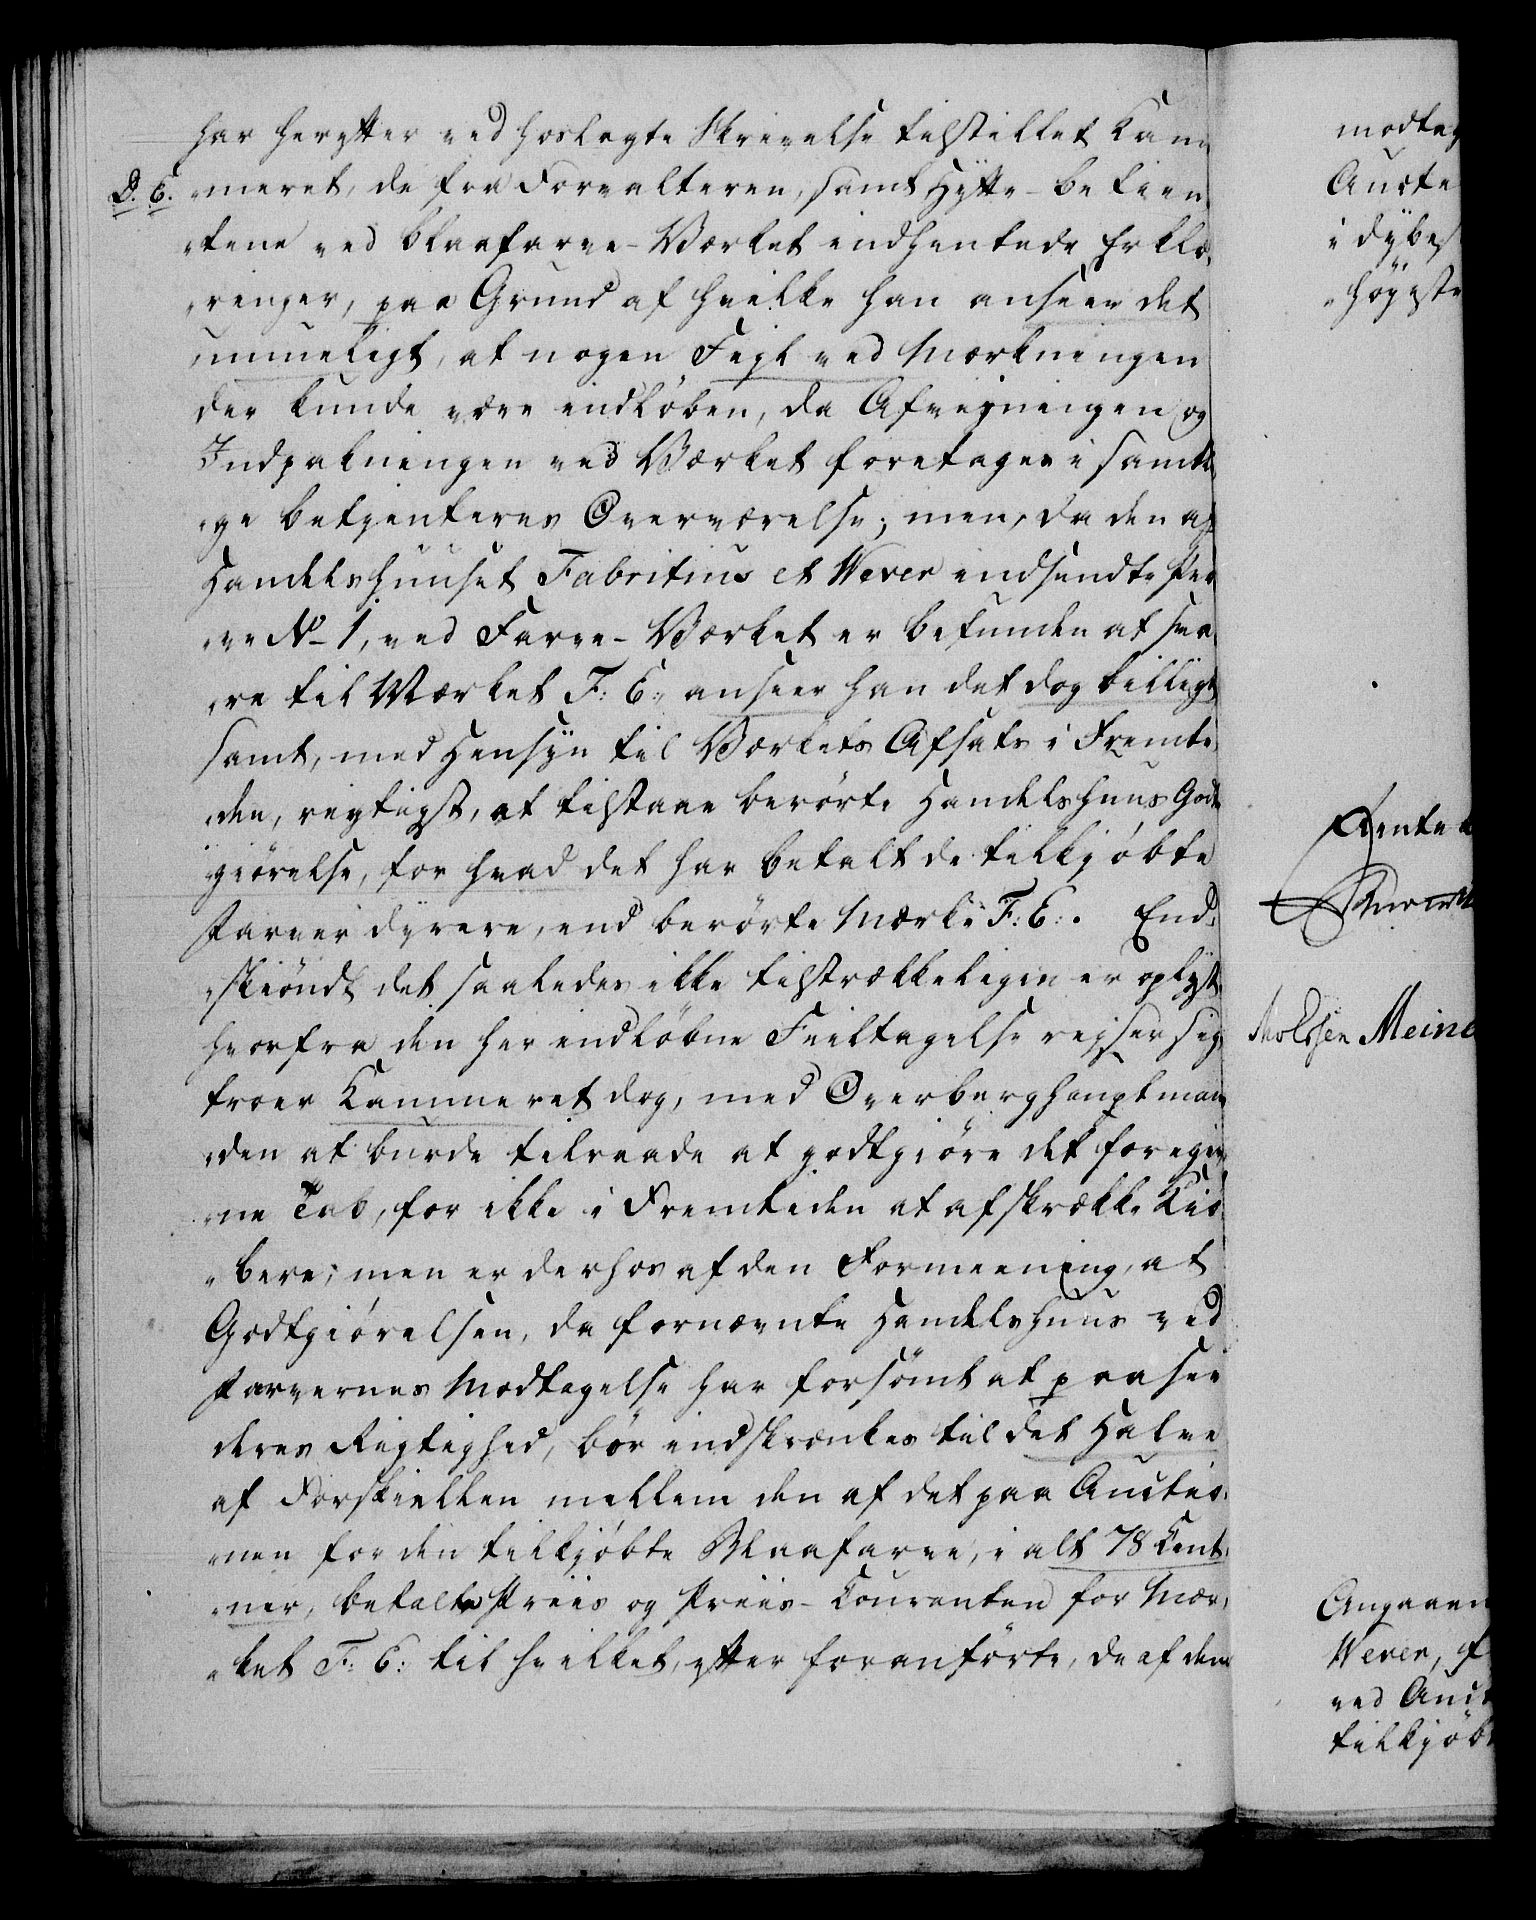 har herefter ved hoslagte Skrivelse tilstillet Kam¬
D. E. „meret, de fra Forvalteren, samt Hytte-betien¬
„tene ved Blaafarve-Værket indhentede Erklæ¬
„ringer, paa Grund af hvilke han anseer det
umueligt, at nogen Fejl ved Mærkningen
der kunde være indløben, da Afvejningen og
Indpakningen ved Værket foretages i samtli¬
„ge betjenteres Overværelse; men, da den af
Handelshuuset Fabritius et Wever indsendte Far¬
„ve No 1, ved Farve-Værket er befunden at sva¬
„re til Mærket F: E: anseer han det dog billigt
samt, med Hensyn til Værkets Afsats i Fremti¬
„den, rigtigst, at tilstaae berørte Handelshuus Godt¬
giørelse, for hvad det har betalt de tilkjøbte
Farver dyrere, end berørte Mærke F: E:. End¬
„skiøndt det saaledes ikke tilstrækkeligen er oplyst
hvorfra den her indløbne Feiltagelse rejser sig
troer Kammeret dog, med Overberghauptman¬
„den at burde tilraade at godtgiøre det foregiv¬
„ne Tab, for ikke i Fremtiden at afskrække Kiø¬
„bere; men er derhos af den Formeening, at
Godtgiørelsen, da fornævnte Handelshuus ved
Farvernes Modtagelse har forsømt at paasee
deres Rigtighed, bør indskrænkes til det Halve
af Forskiellen mellem den af det paa Auctio¬
„nen for den tilkjøbte Blaafarve, i alt 78 Cent¬
„ner, betalte Priis og Priis-Couranten for Mær¬
„ket F: E: til hvilket, efter foranførte, de af dem
modtag
Aucte
i dybes
„høyeste
Rente
Meine
Angaaen
Wever, f
ved Auct
tilkjøb